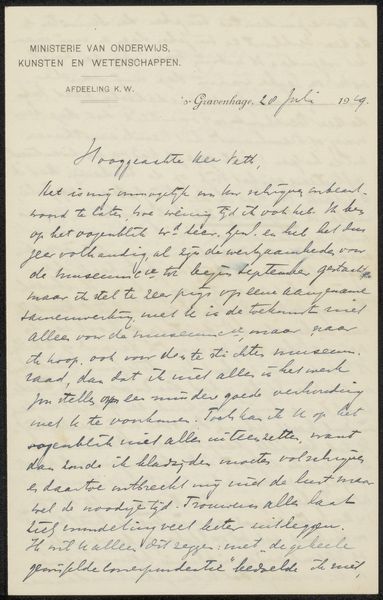 MINISTERIE VAN ONDERWIJS,
KUNSTEN EN WETENSCHAPPEN.
AFDEELING K. W.
's-Gravenhage, 20 Juli 1919.
Hooggeachte Heer Veth,
Het is mij onmogelijk om Uw schrijven onbeant-
woord te laten, hoe weinig tijd ik ook heb. Ik ben
op het oogenblik en heb het dus
zeer volhandig, al zijn de werkzaamheden voor
de museum tot begin September gestaakt
maar ik stel te zeer prijs op eene aangename
samenwerking met U in de toekomst niet
alleen voor de museum maar naar
ik hoop, ook voor den te stichten museum-
raad, dan dat ik niet alles in het werk
zou stellen om een minder goede verhouding
met U te voorkomen. Toch kan ik U op het
oogenblik niet alles uiteenzetten, want
dan zoude ik bladzijden moeten volschrijven
en daartoe ontbreekt mij niet de lust maar
wel de noodige tijd. Trouwens alles laat
zich mondeling veel beter uitleggen.
Ik wil U alleen dit zeggen: met "de geheele
correspondentie" bedoelde ik niet,